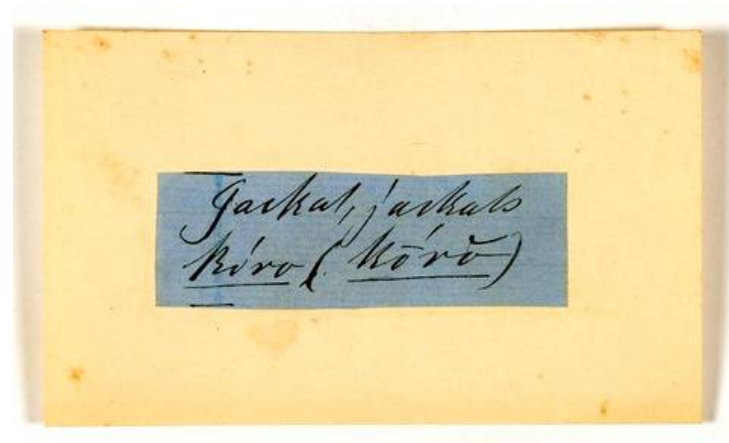 Jackal, jackals
kóro (kṓrŏ)